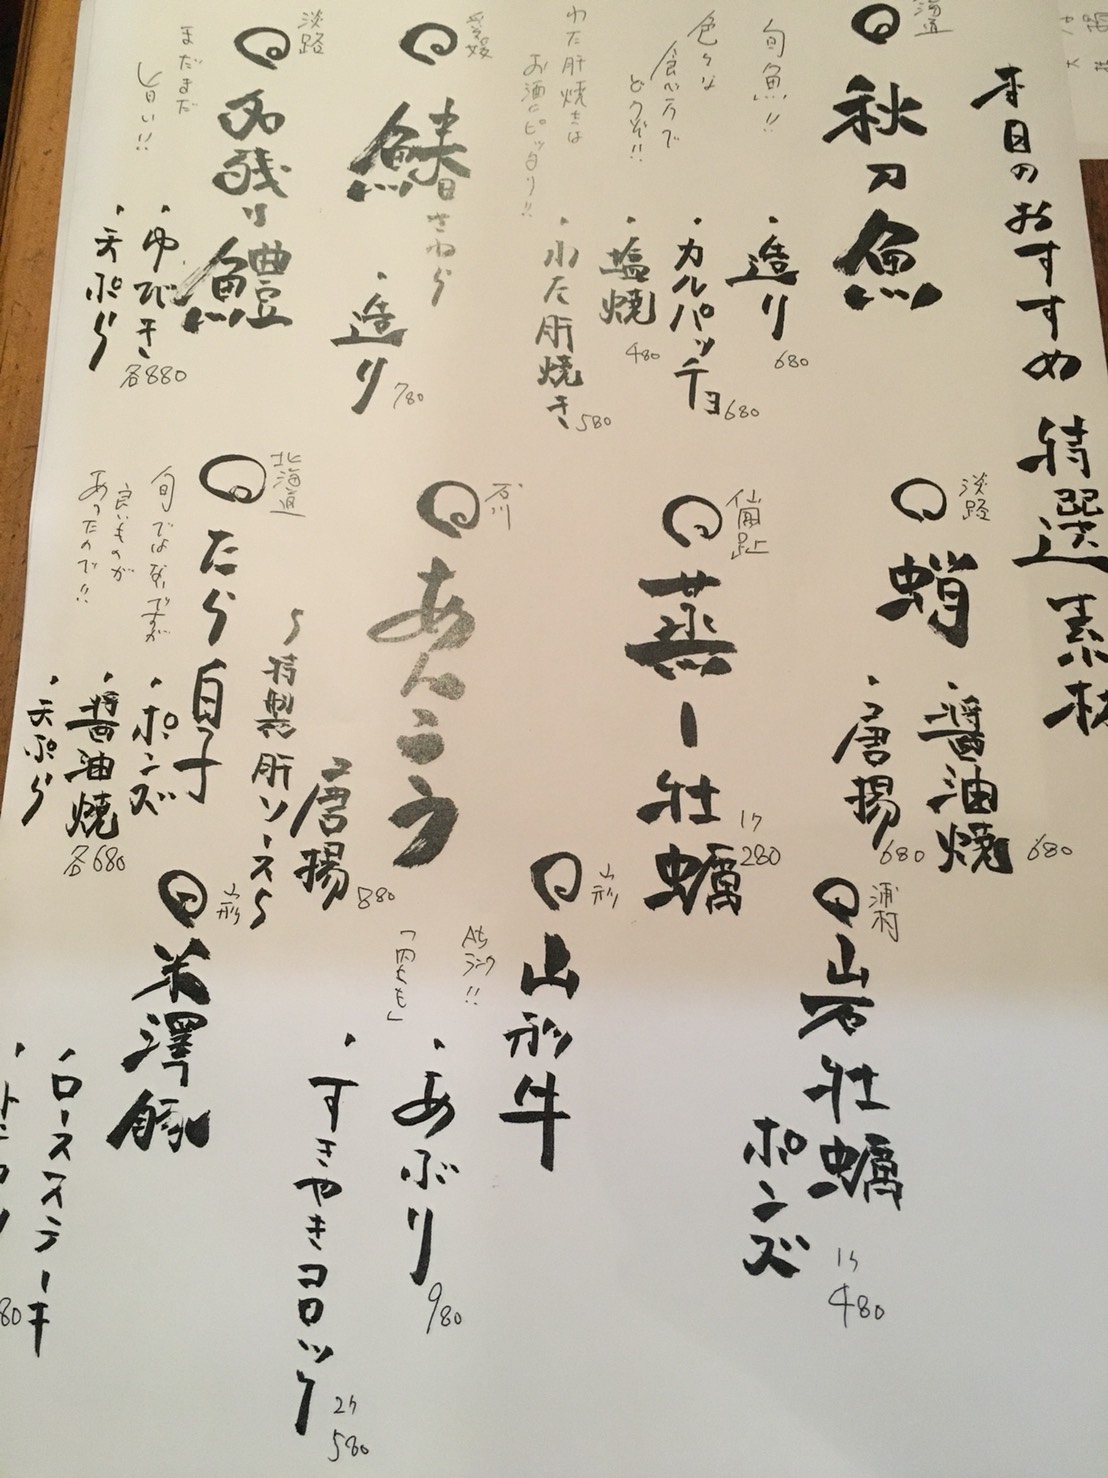 本日のおすすめ 特選素材
海道
秋刀魚
旬魚!!
色々な
食べ方で
どうぞ!!
・造り 680
・カルパッチョ 680
・塩焼 480
・わた肝焼き 580
わた肝焼きは
お酒にピッタリ!!
愛媛
鰆
さわら
・造り 780
淡路
名残り鱧
まだまだ
旨い!!
・ゆびき
・天ぷら
各880
淡路
蛸
・醤油焼 680
・唐揚 680
仙鳳趾
蒸し牡蠣
1ケ
280
石川
あんこう
唐揚 880
〜特製肝ソース〜
北海道
たら白子
旬ではないですが
良いものが
あったので!!
・ポンズ
・醤油焼
・天ぷら
各680
浦村
岩牡蠣
ポンズ
1ケ
480
山形
山形牛
A5
ランク!!
「内もも」
・あぶり
980
・すきやきコロッケ
2ケ
580
山形
米澤豚
・ロースステーキ
80